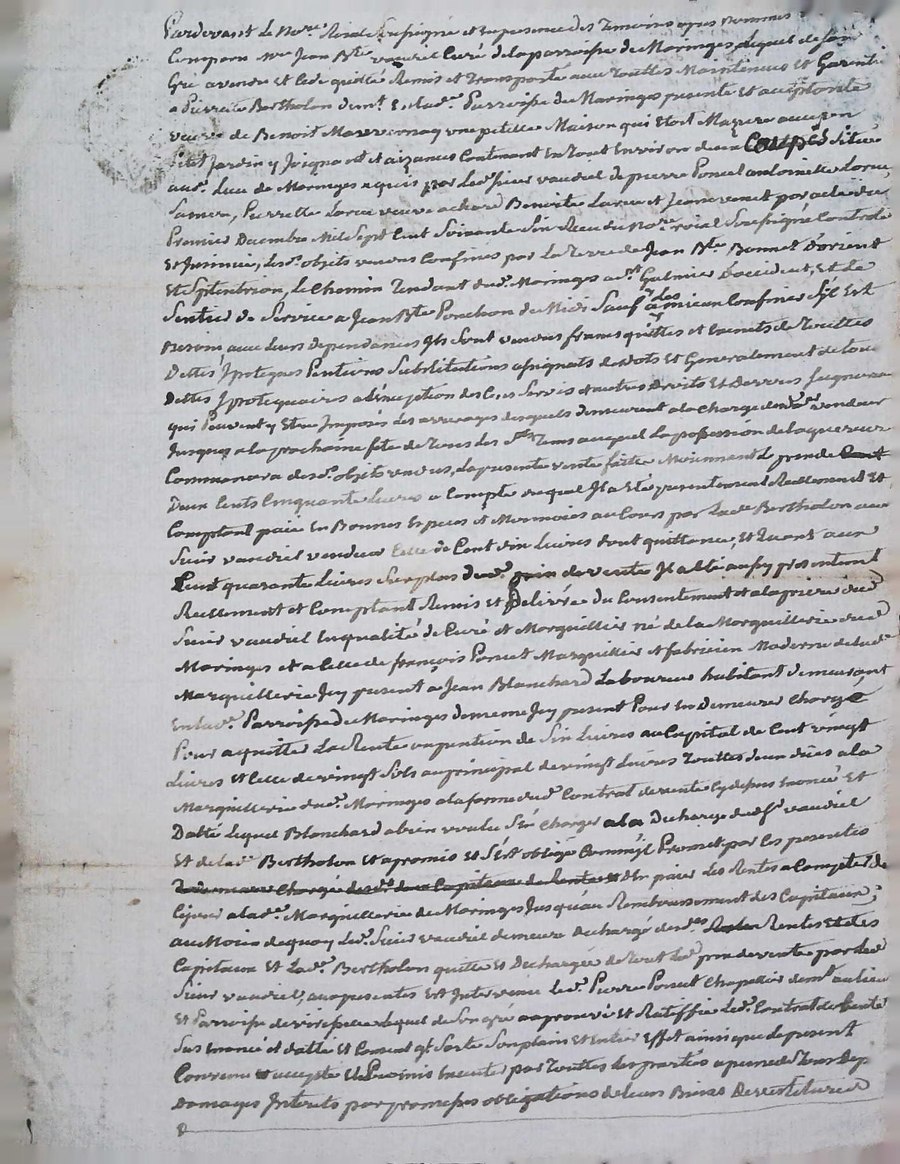 Pardevant le No.re Roial soussigné et en presence des Temoins apres nommés
Comparu M.re Jean B.te vaudiel Curé de la parroisse de Maringes lequel de son
Gré a vendu et Cedé quitté Remis et Transporté aux Touttes Maintenues et Garentie
a Pierrette Bartholon dem.t En lad.e Parroisse de Maringes presente et acceptante
veuve de Benoit une petite Maison qui etoit Mazure avec un
petit Jardin y Joignant et aizances Contenant En Tout Environ deux Coupés Situé
aud. Lieu de Maringes acquis par led. sieur vaudiel de pierre Poncet antoinette
Pierrette veuve Benoite et Jean par acte du
Premier Decembre Mil Sept Cent Soixante Six Receu du No.re roial Soussigné Controlé
Et Insinué, lesd. objets vendus Confinés par la Terre de Jean B.te Bonnet D'orient
Et Septentrion, le Chemin Tendant dud. Maringes a S.t Galmier D'occident, Et Le
Sentier de Service a Jean B.te Ponchon du Midi Sauf les mieux Confiner S'il Est
Besoin, avec leurs dependances Ils Sont vendus francs quittes et Exempts de Touttes
Dettes Ipoteques Pentions Substitutions assignats de dots Et Generalement de tous
Dettes Ipotequaires a l'exeption des Cens Servis et autres Droits Et Devoirs Seigneuriaux
qui Peuvent y Etre Imposés les arrerages desquels demeurent a la Charge dud. s.r vendeur
Jusques a la prochaine fete de Tous les S.ts Tems auquel La possession de l'acquereur
Commancera desd. objets vendus, La presente vente faitte Moiennant Le prix de
Deux Cents Cinquante Livres a Compte duquel Il a Eté presentement Reellement Et
Comptant paié En Bonnes Especes et Monnoies au Cours par Lad. Bartholon aud.
Sieur vaudiel vendeur Celle de Cent dix Livres dont quittance, Et Quant aux
Cent quarante Livres Surplus dud. prix de vente Il a Eté aussy presentement
Reellement et Comptant Remis et Delivré du Consentement et a la priere dud.
Sieur vaudiel En qualité de Curé et Marguillier né de la Marguillerie dud.
Maringes et a Celle de françois Poncet Marguillier et fabricien Moderne de lad.
Marguillerie Icy present a Jean Blanchard Laboureur habitant demeurant
En lad. Parroisse de Maringes de meme Icy present Pour En demeurer Chargé
Pour acquitter La Rente ou pention de Six Livres au Capital de Cent vingt
Livres et Celle de vingt Sols au principal de vingt Livres Touttes deux dües a la
Marguillerie dud. Maringes a la forme dud. Contrat de vente Cy dessus Enoncé Et
Datté Lequel Blanchard a bien voulu S'en Charger a la Decharge dud. S.r vaudiel
Et de lad. Bertholon Et a promis et S'est obligé Comme Il Promet par les presentes
en paier Les Rentes a Compter de
ce jour a lad. Marguillerie de Maringes Jusqu'au Remboursement des Capitaux,
au Moien de quoy led. Sieur vaudiel demeure Dechargé desd. Rentes et des
Capitaux Et Lad. Bertholon quitte et Dechargée de Tout Led. prix de vente par led.
Sieur vaudiel, aux presentes Est Intervenu Led. Pierre Poncet Chapellier dem.t au lieu
Et Parroisse de viricelle lequel de Son gré a approuvé et Ratiffié Led. Contrat de vente
Sus Enoncé et datté Et Consent q.l Sorte Son plain Et Entier Effet ainsi que de present
Convenu accepté Et Promis Executer par Touttes les parties a peine de Tous Dep.
Domages Interets par promesses obligations de leurs Biens Devestitures